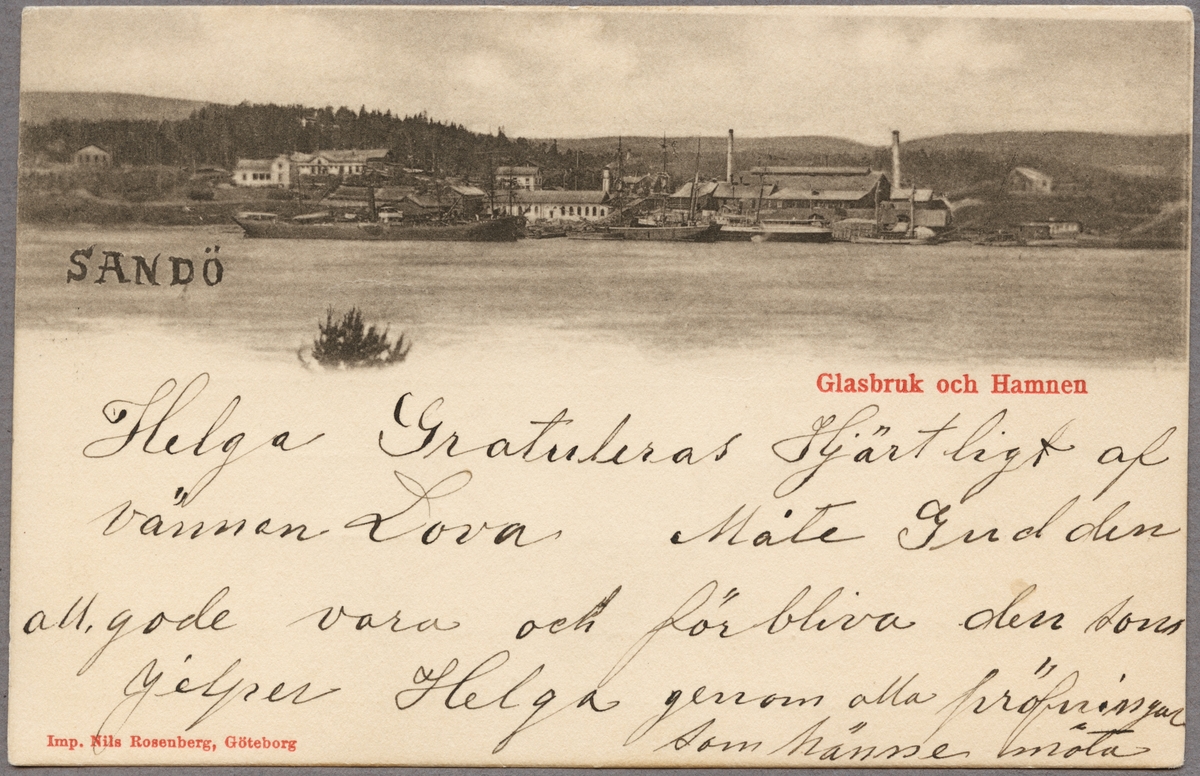 SANDÖ
Glasbruk och Hamnen
Helga Gratuleras Hjärtligt af
vännen Lova Måte Gud den
all, gode vara och förbliva den som
jelper Helga genom alla pröfningar
som hänne möta
Imp. Nils Rosenberg, Göteborg